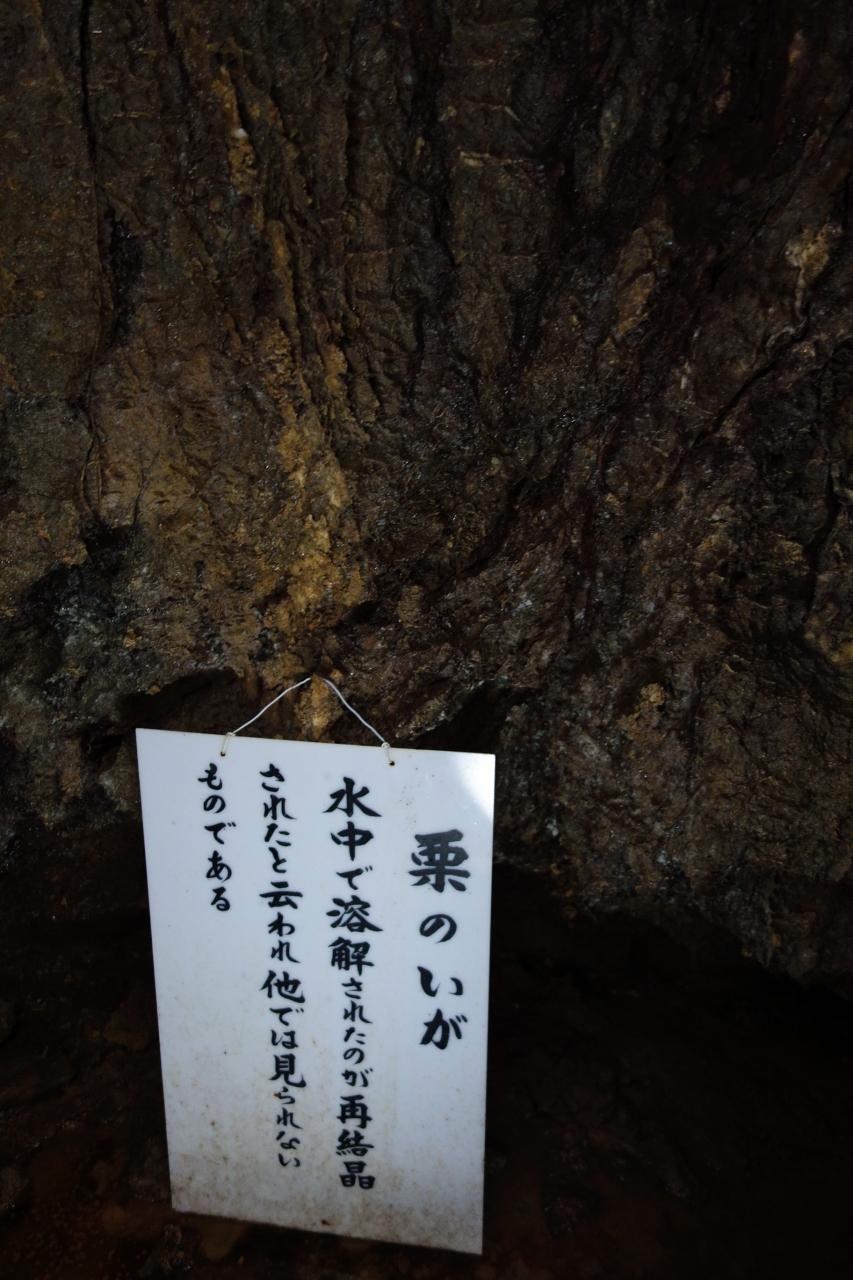 栗のいが
水中で溶解されたのが再結晶
されたと云われ他では見られない
ものである